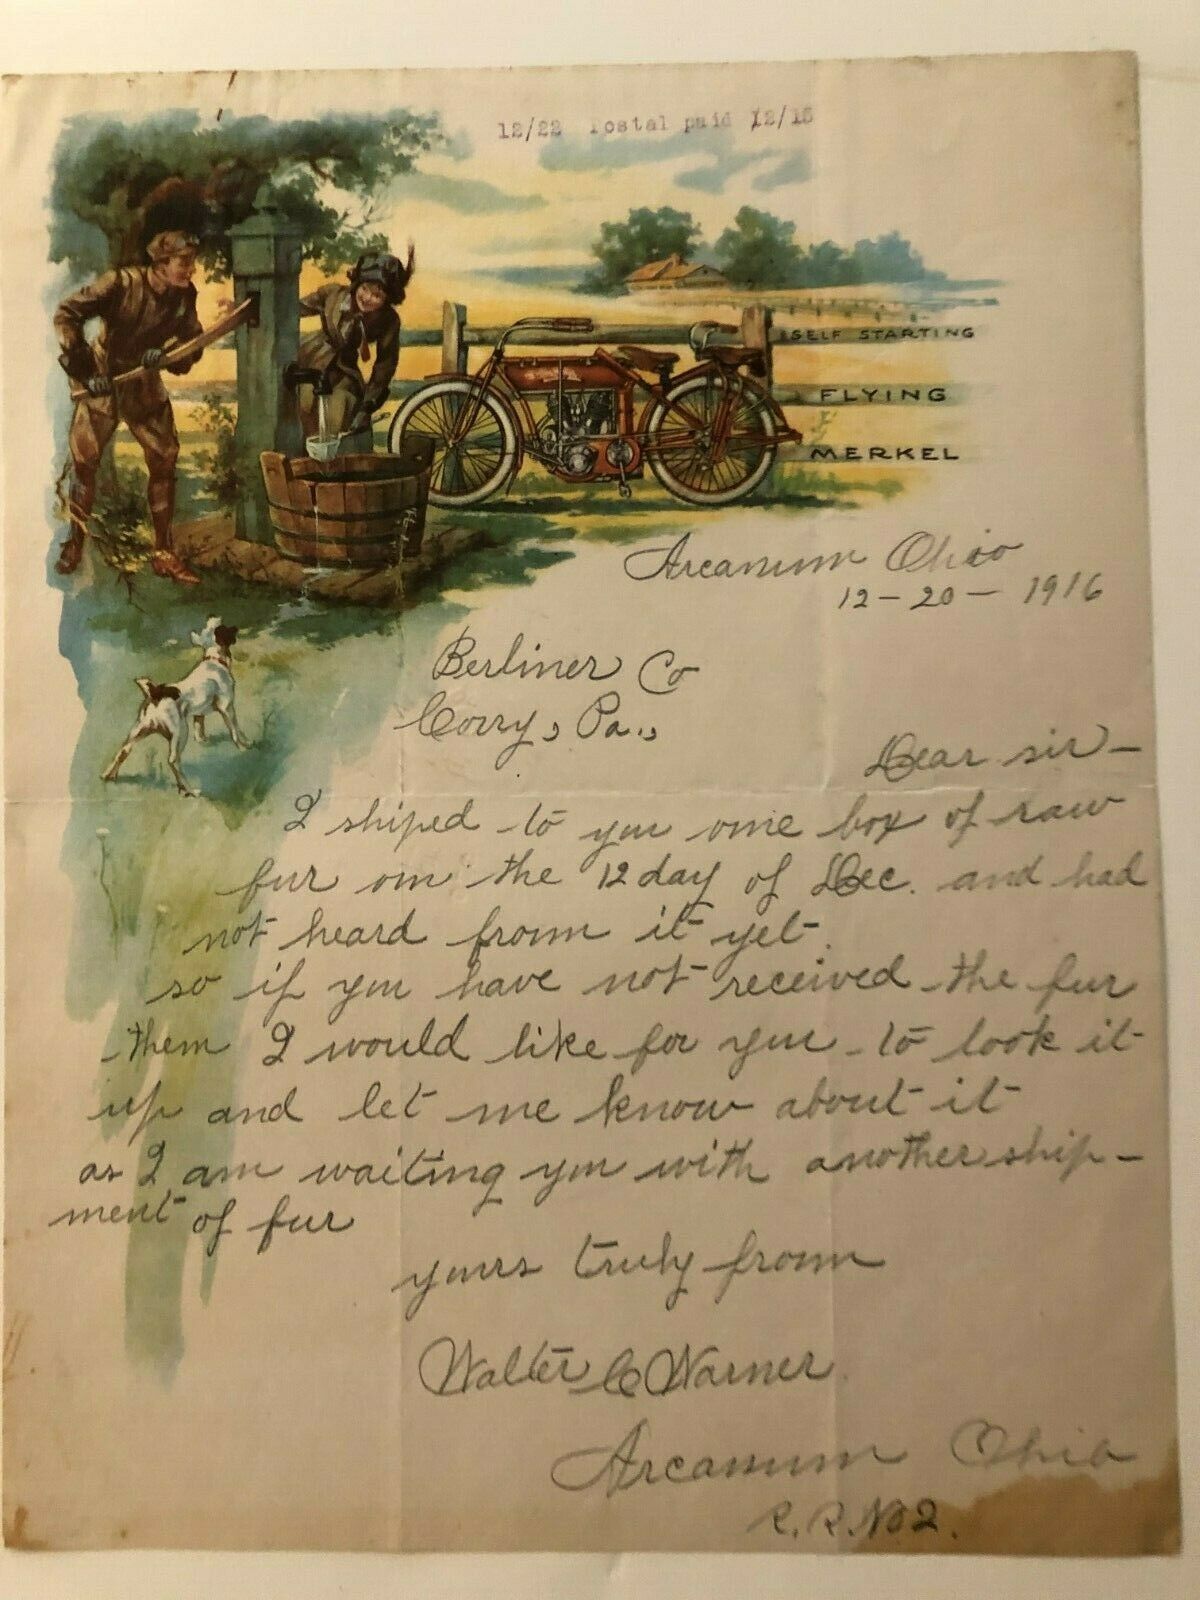 12/22 Postal paid 12/15
SELF STARTING
FLYING
MERKEL
Arcanum Ohio
12-20-1916
Berliner Co
Corry, Pa.,
Dear sir-
I shiped to you one box of raw
fur on the 12 day of Dec. and had
not heard from it yet.
so if you have not received the fur
them I would like for you to look it
up and let me know about it
as I am waiting you with another ship-
ment of fur
yours truly from
Walter C Warner.
Arcanum Ohio
R.R.No2.